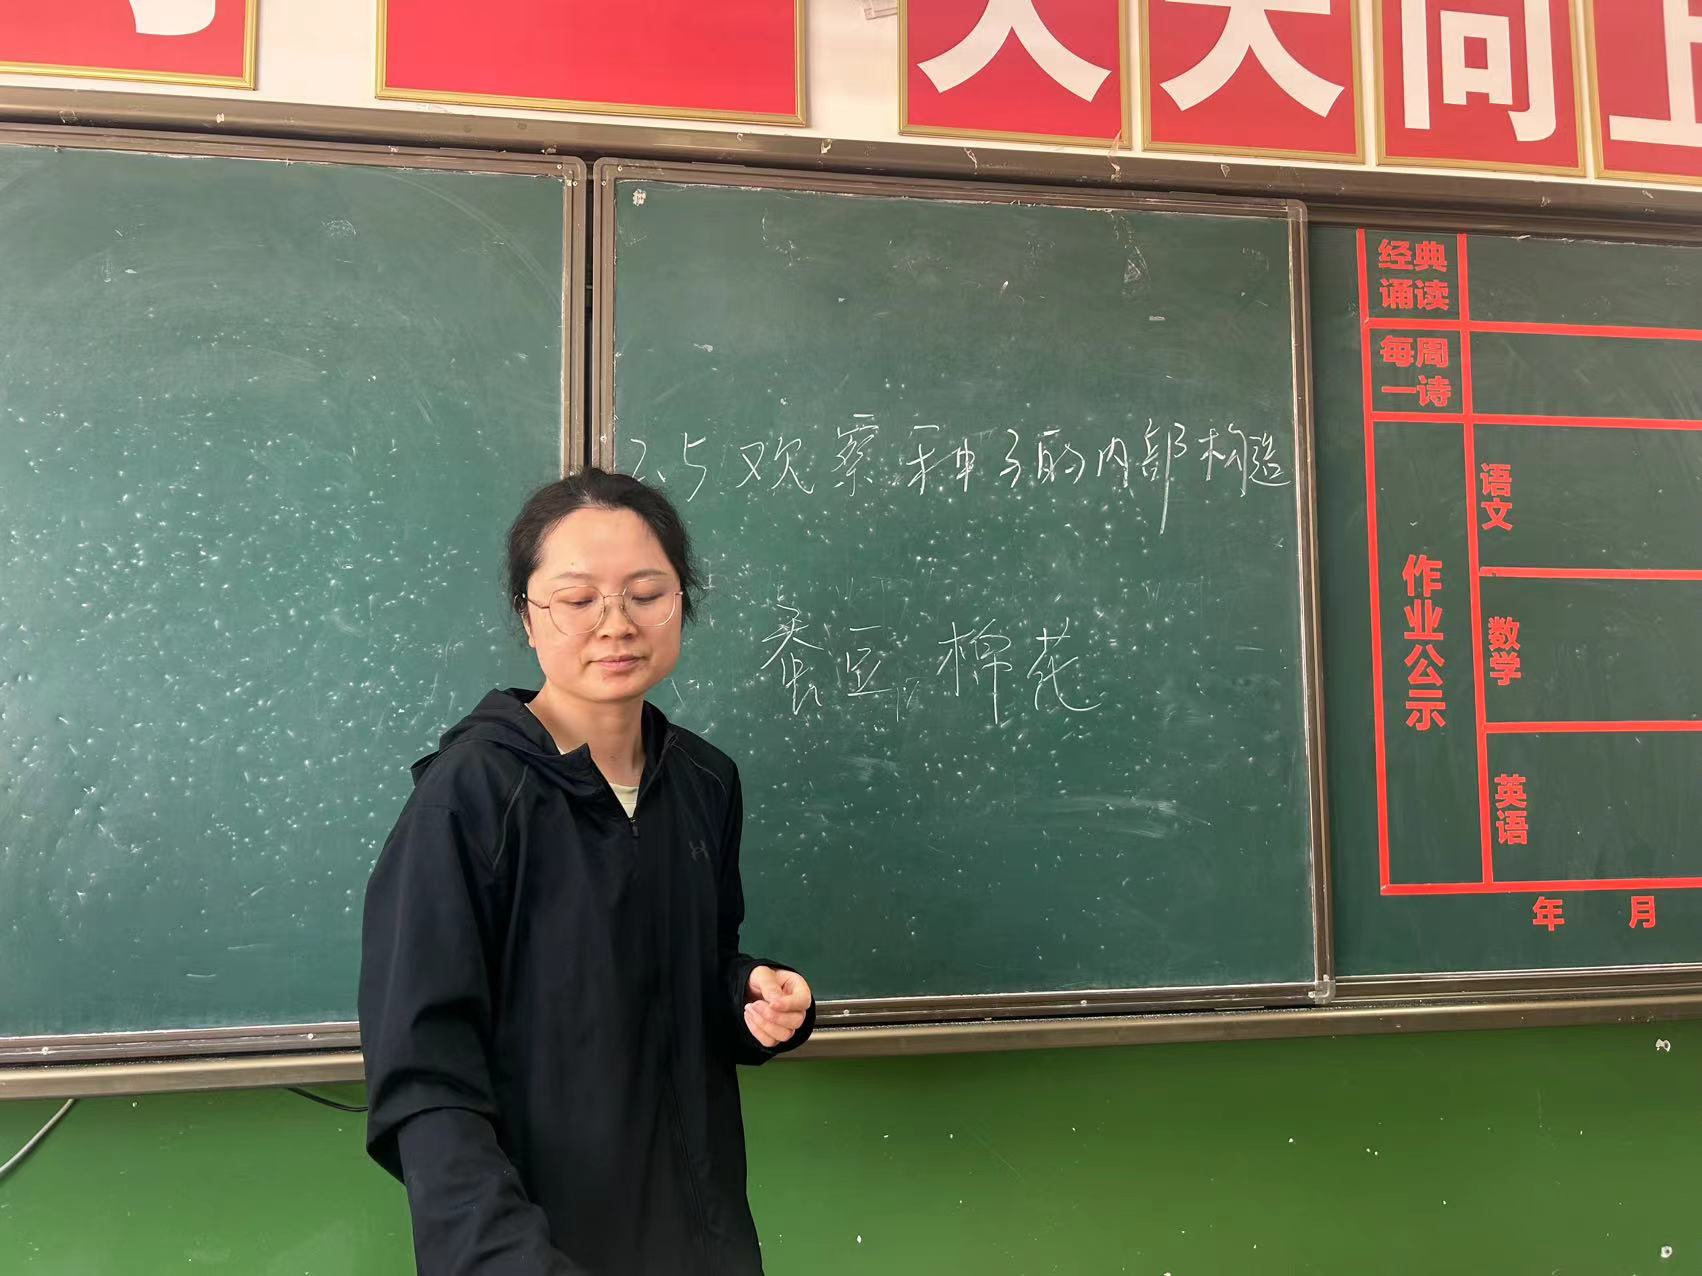 天天向上
2.5 观察种子的内部构造
蚕豆、棉花
经典
诵读
每周
一诗
作业公示
语文
数学
英语
年 月